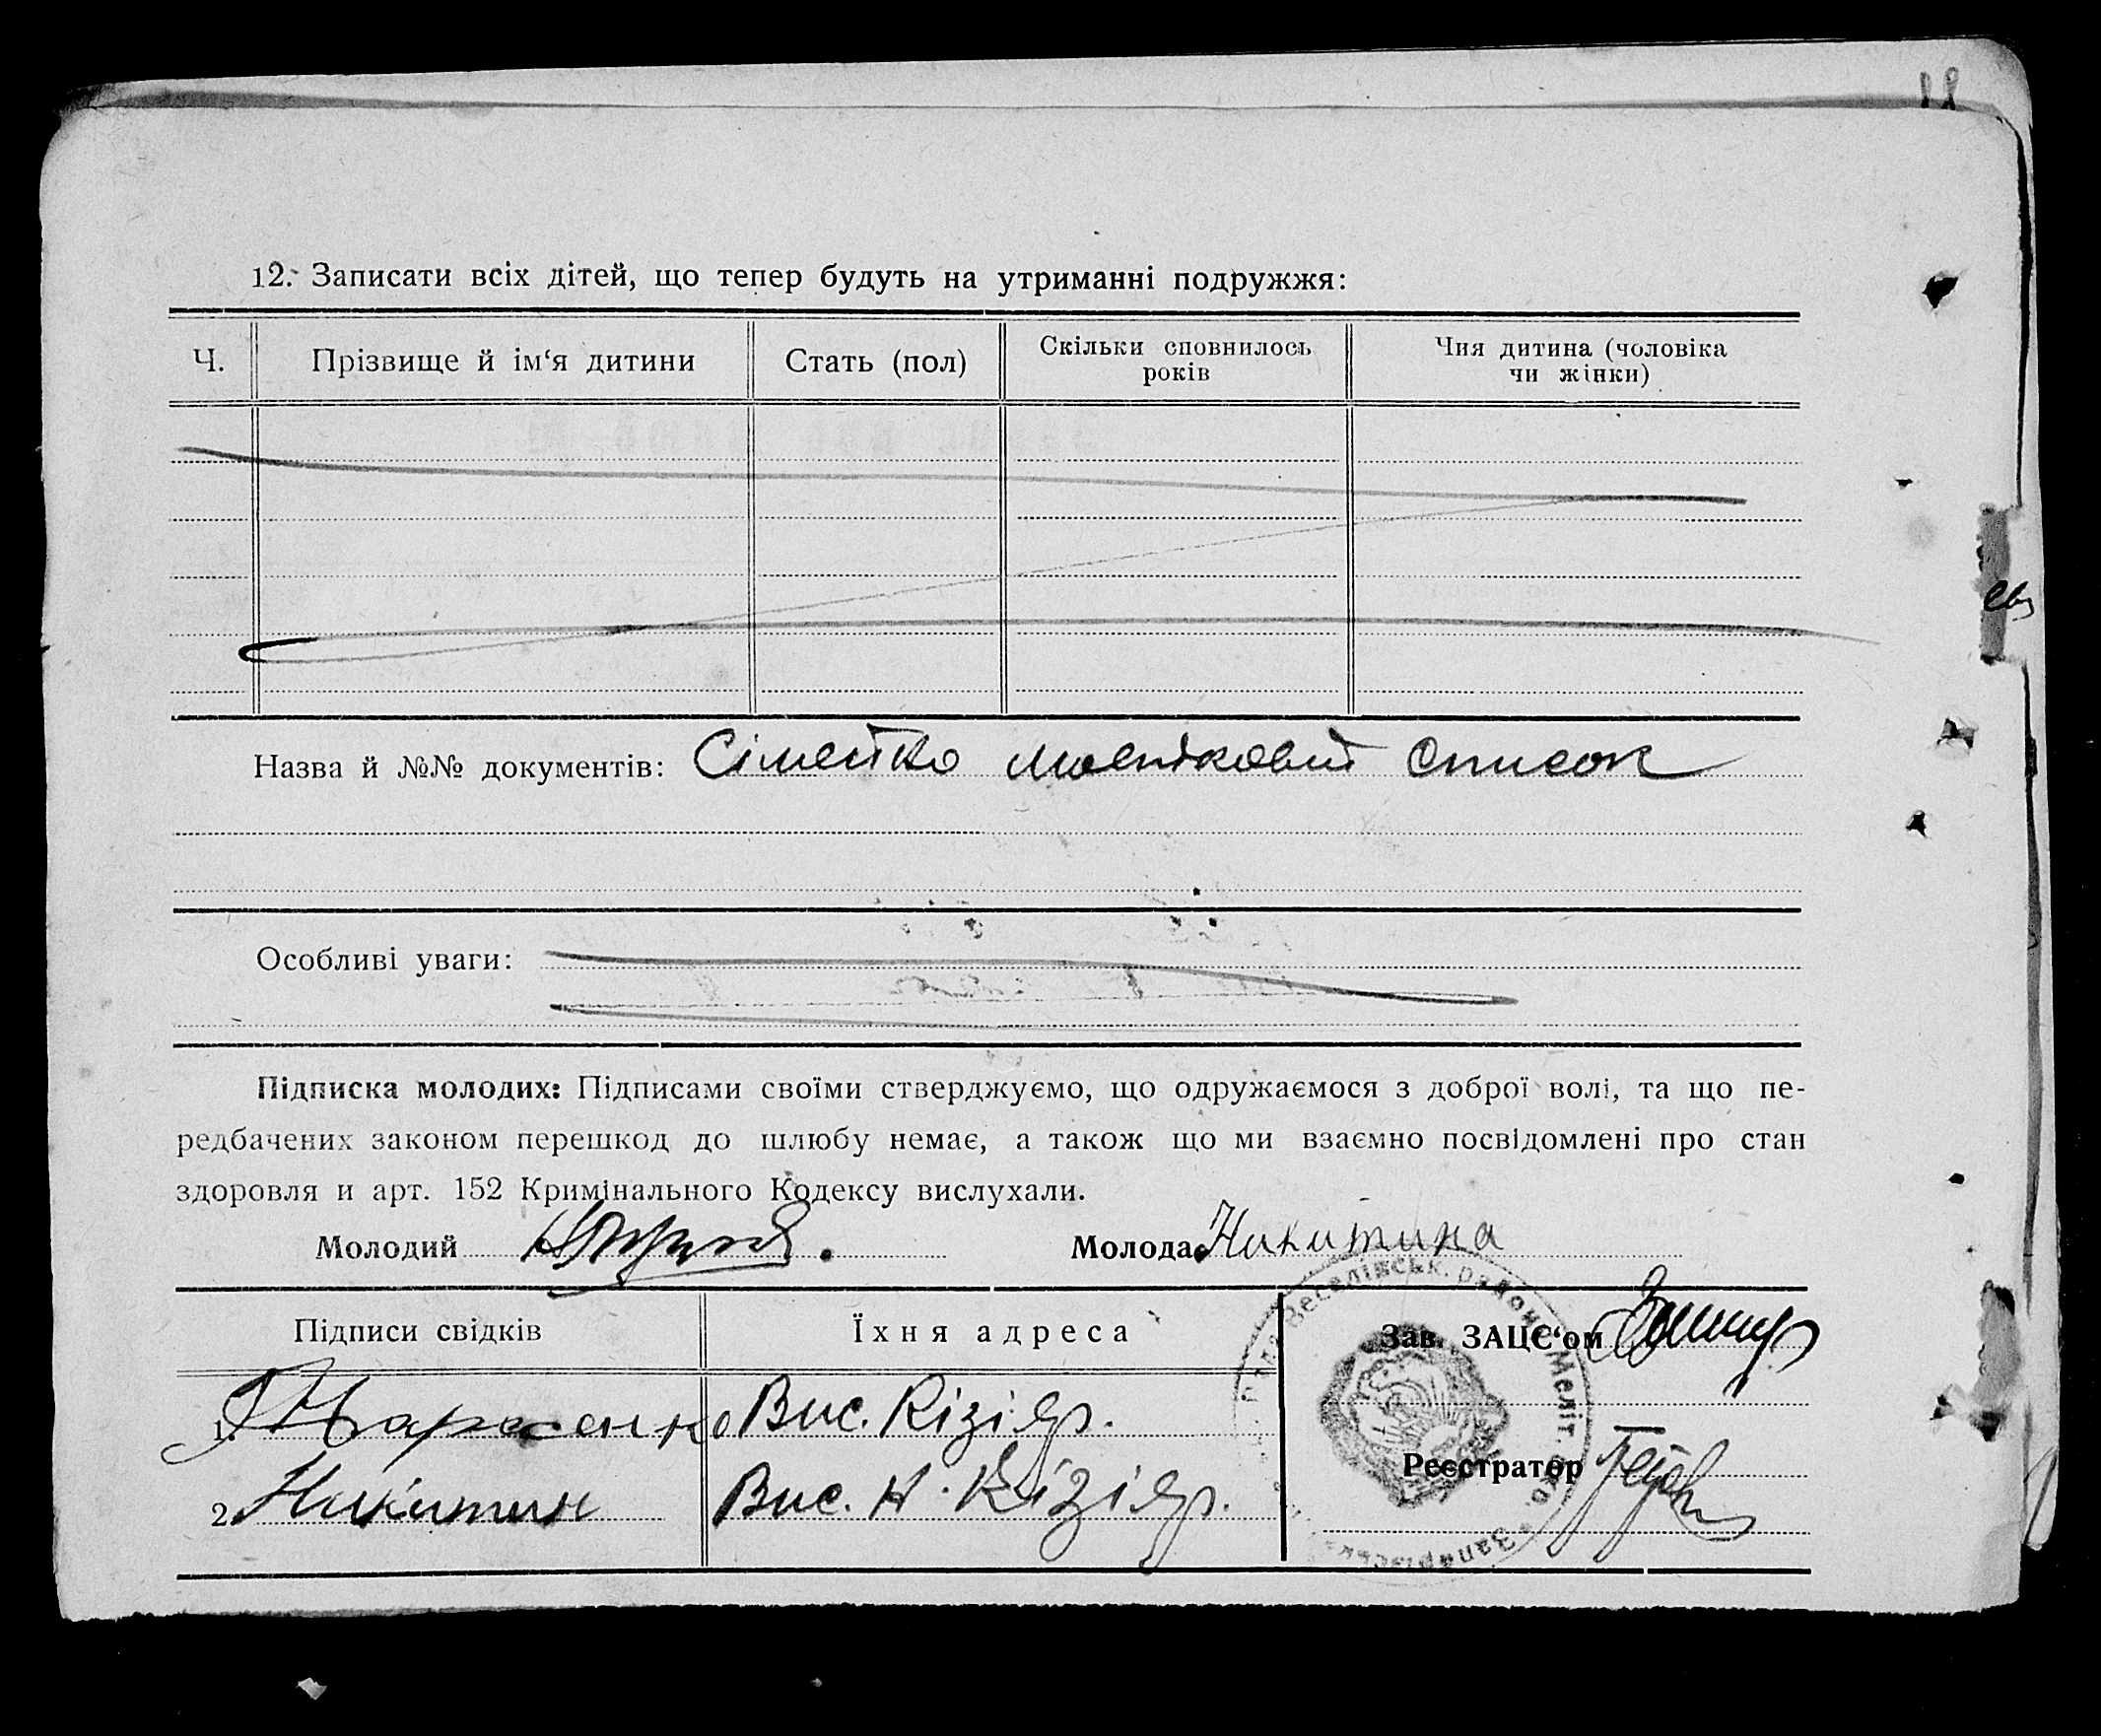 12. Записати всіх дітей, що тепер будуть на утриманні подружжя:
Ч. Прізвище й ім‘я дитини Стать (пол) Скільки сповнилось років Чия дитина (чоловіка чи жінки)
Назва й №№ документів: Сімейно майновий список
Особливі уваги:
Підписка молодих: Підписами своїми стверджуємо, що одружаємося з доброї волі, та що пе-
редбачених законом перешкод до шлюбу немає, а також що ми взаємно посвідомлені про стан
здоровля и арт. 152 Кримінального Кодексу вислухали.
Молодий Молода Никитина
Підписи свідків Їхня адреса Зав. ЗАЦС‘ом
Вис. Кізіяр.
Реєстратор
2. Никитин Вис. Н. Кізіяр.
Веселівськ. району Меліт. окр. Запарізськ